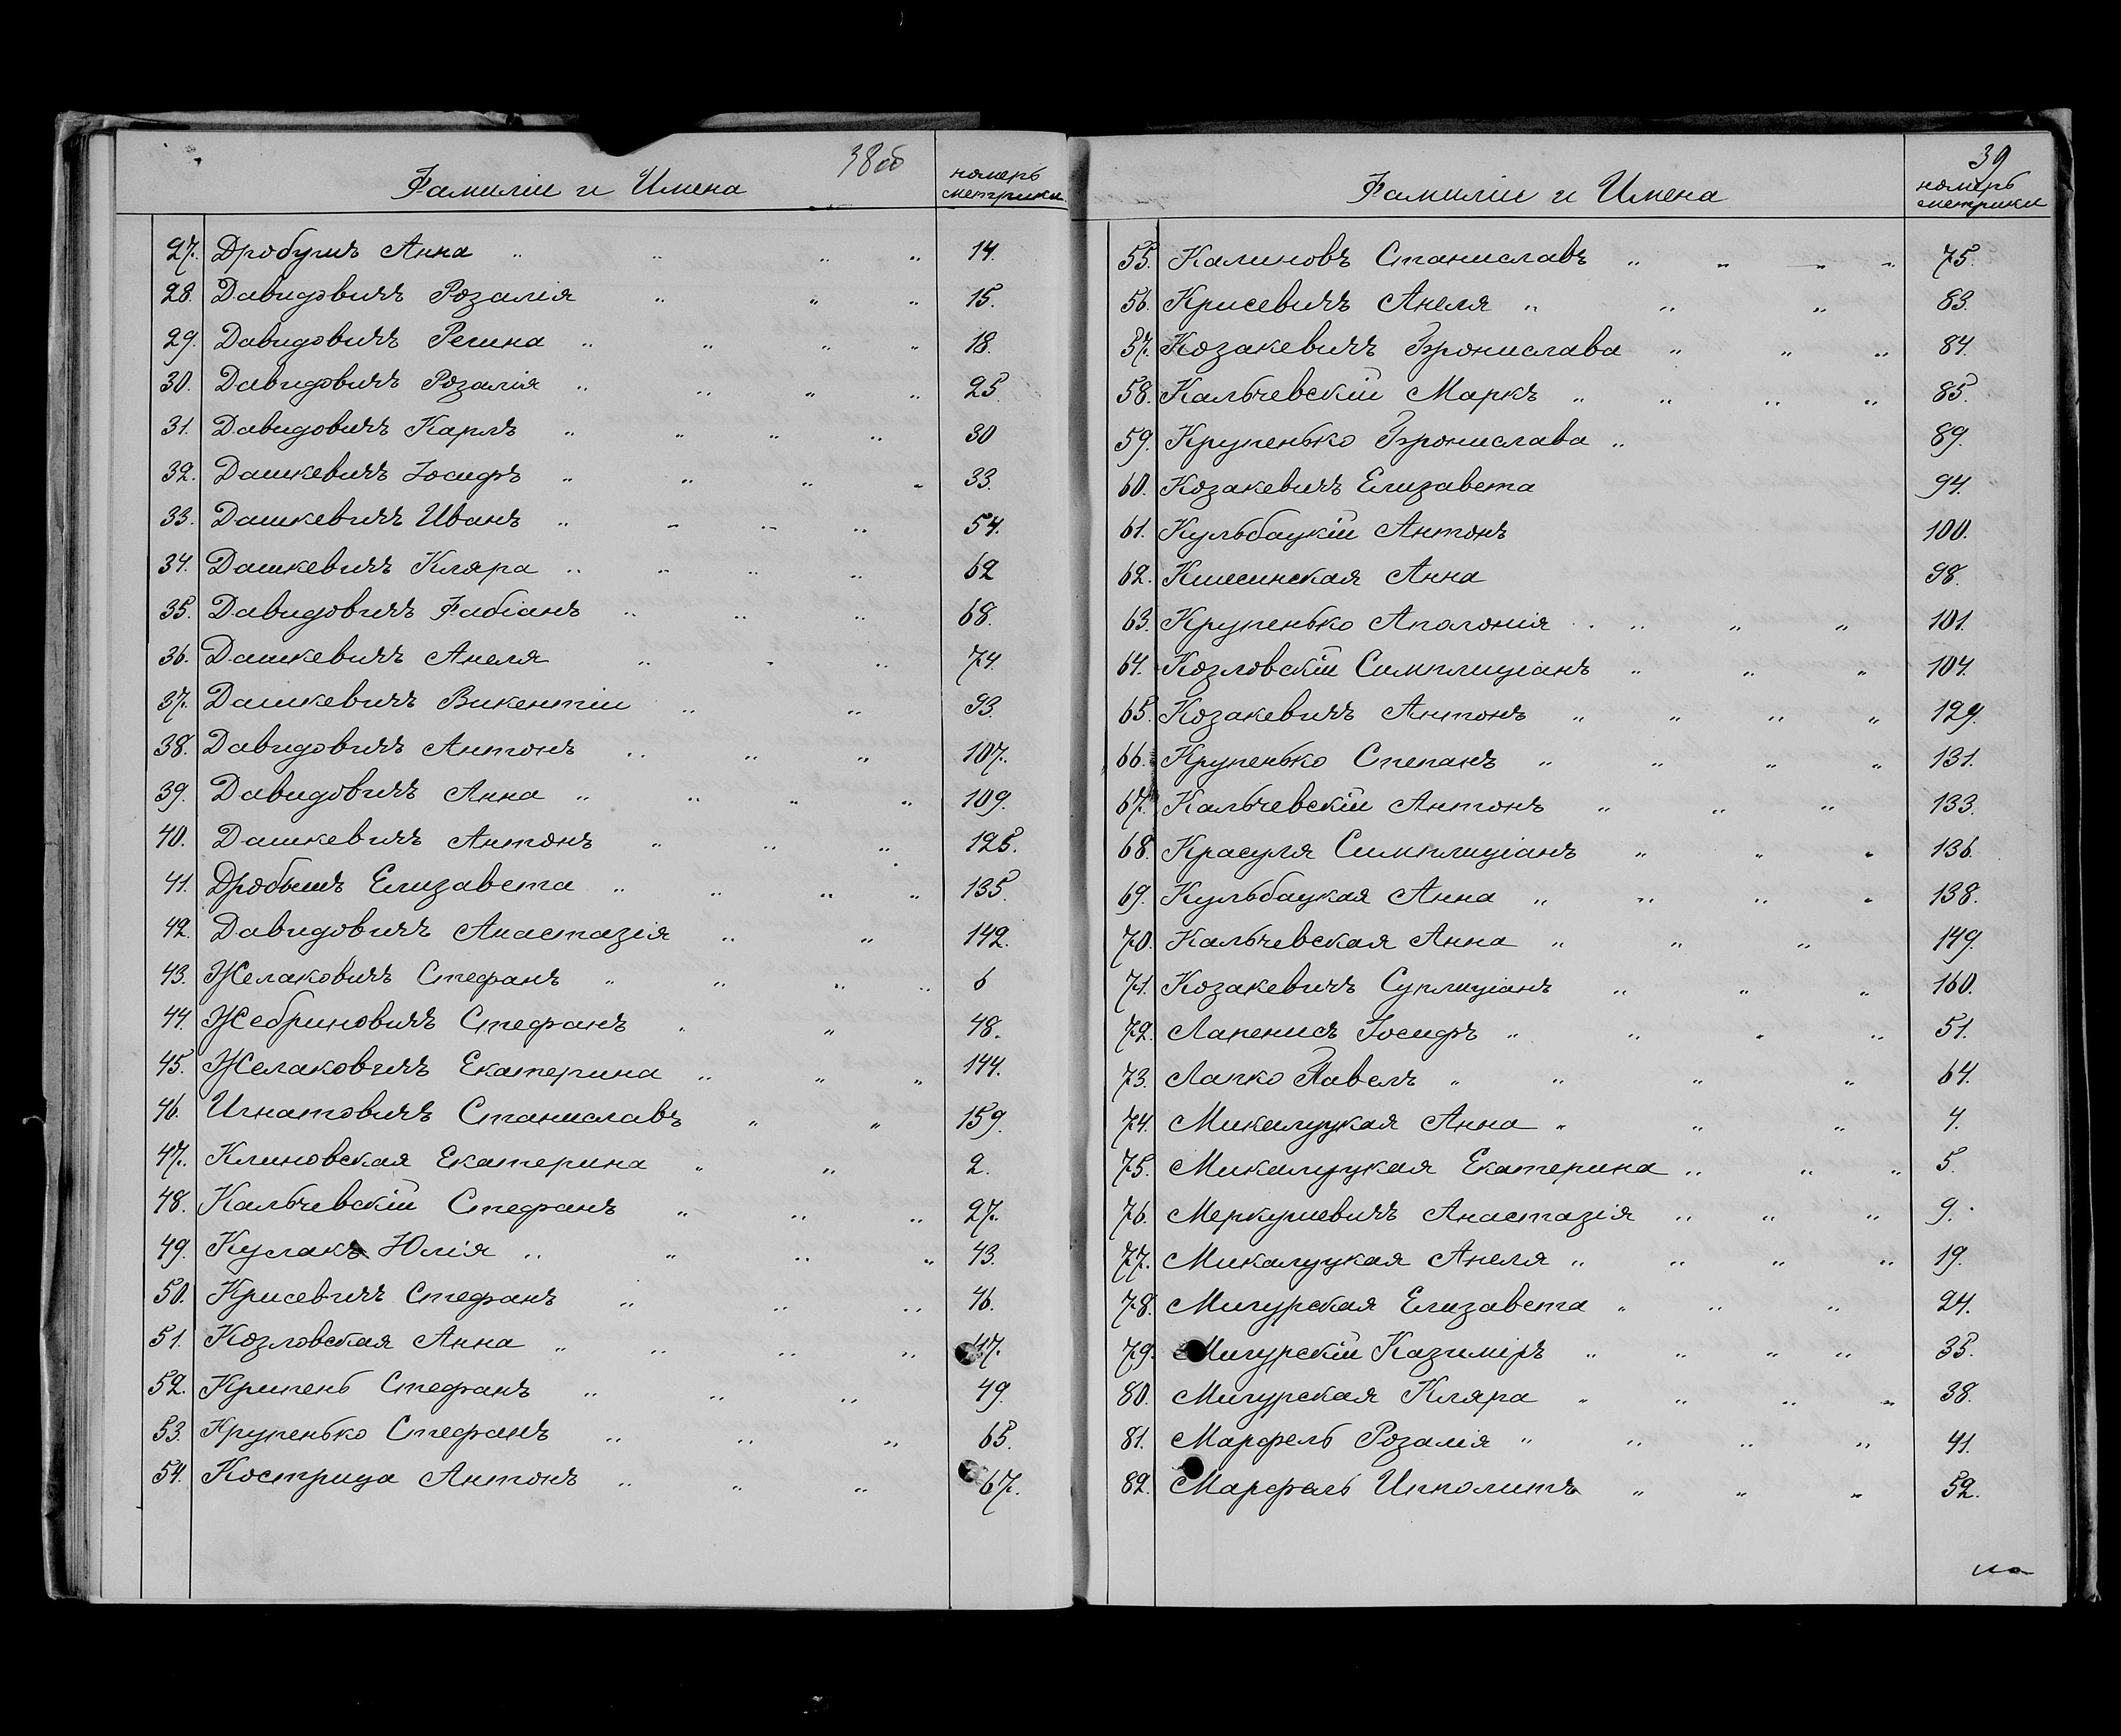 38об
Фамиліи и Имена
номеръ
метрики
27. Дробушъ Анна " " " " 14.
28. Давидовичъ Розалія " " " 15.
29. Давидовичъ Регина " " " " 18.
30. Давидовичъ Розалія " " " " 25.
31. Давидовичъ Карлъ " " " " 30
32. Дашкевичъ Іосифъ " " " " 33.
33. Дашкевичъ Иванъ " " " " 54.
34. Дашкевичъ Кляра " " " " 62
35. Давидовичъ Фабіанъ " " " 68.
36. Дашкевичъ Анеля " " " 74.
37. Дашкевичъ Викентій " " 93.
38. Давидовичъ Антонъ " " " 107.
39. Давидовичъ Анна " " " " 109.
40. Дашкевичъ Антонъ " " " 125.
41. Дробышъ Елизавета " " " " 135.
42. Давидовичъ Анастазія " " 142.
43. Желаковичъ Стефанъ " " " " 6
44. Жебриновичъ Стефанъ " " 48.
45. Желаковичъ Екатерина " " " 144.
46. Игнатовичъ Станиславъ " " 159.
47. Клиновская Екатерина " " 2.
48. Кальчевскій Стефанъ " " " 27.
49. Кулакъ Юлія " " " " 43.
50. Крисевичъ Стефанъ " " " 46.
51. Козловская Анна " " " " 47.
52. Крипень Стефанъ " " " 49.
53. Крупенько Стефанъ " " " 65.
54. Кострица Антонъ " " " 67.
39
Фамиліи и Имена
номеръ
метрики
55. Калиновъ Станиславъ " " " " 75.
56. Крисевичъ Анеля " " " 83.
57. Козакевичъ Брониславa " " " 84.
58. Кальчевскій Маркъ " " " " 85.
59. Крупенько Бронислава " 89.
60. Козакевичъ Елизавета 94.
61. Кульбацкій Антонъ 100.
62. Кшесинская Анна 98.
63. Крупенько Аполонія " " " 101.
64. Козловскій Симплиціанъ " " " 104.
65. Козакевичъ Антонъ " " " " 129.
66. Крупенько Степанъ " " " " 131.
67. Кальчевскій Антонъ " " " 133.
68. Красуля Симплиціанъ " " " 136.
69. Кульбацкая Анна " " " " 138.
70. Кальчевская Анна " " " 149.
71. Козакевичъ Суплиціанъ " " " 160.
72. Лапенисъ Іосифъ " " " " 51.
73. Лапко Павелъ " " " " 64.
74. Микалуцкая Анна " " " 4.
75. Микалуцкая Екатерина " " " 5.
76. Меркушевичъ Анастазія " " " 9.
77. Микалуцкая Анеля " " " " 19.
78. Мигурская Елизавета " " " 24.
79. Мигурскій Казиміръ " " " " 35.
80. Мигурская Кляра " " " " 38.
81. Марфель Розалія " " " " 41.
82. Марфель Ипполитъ " " " 52.